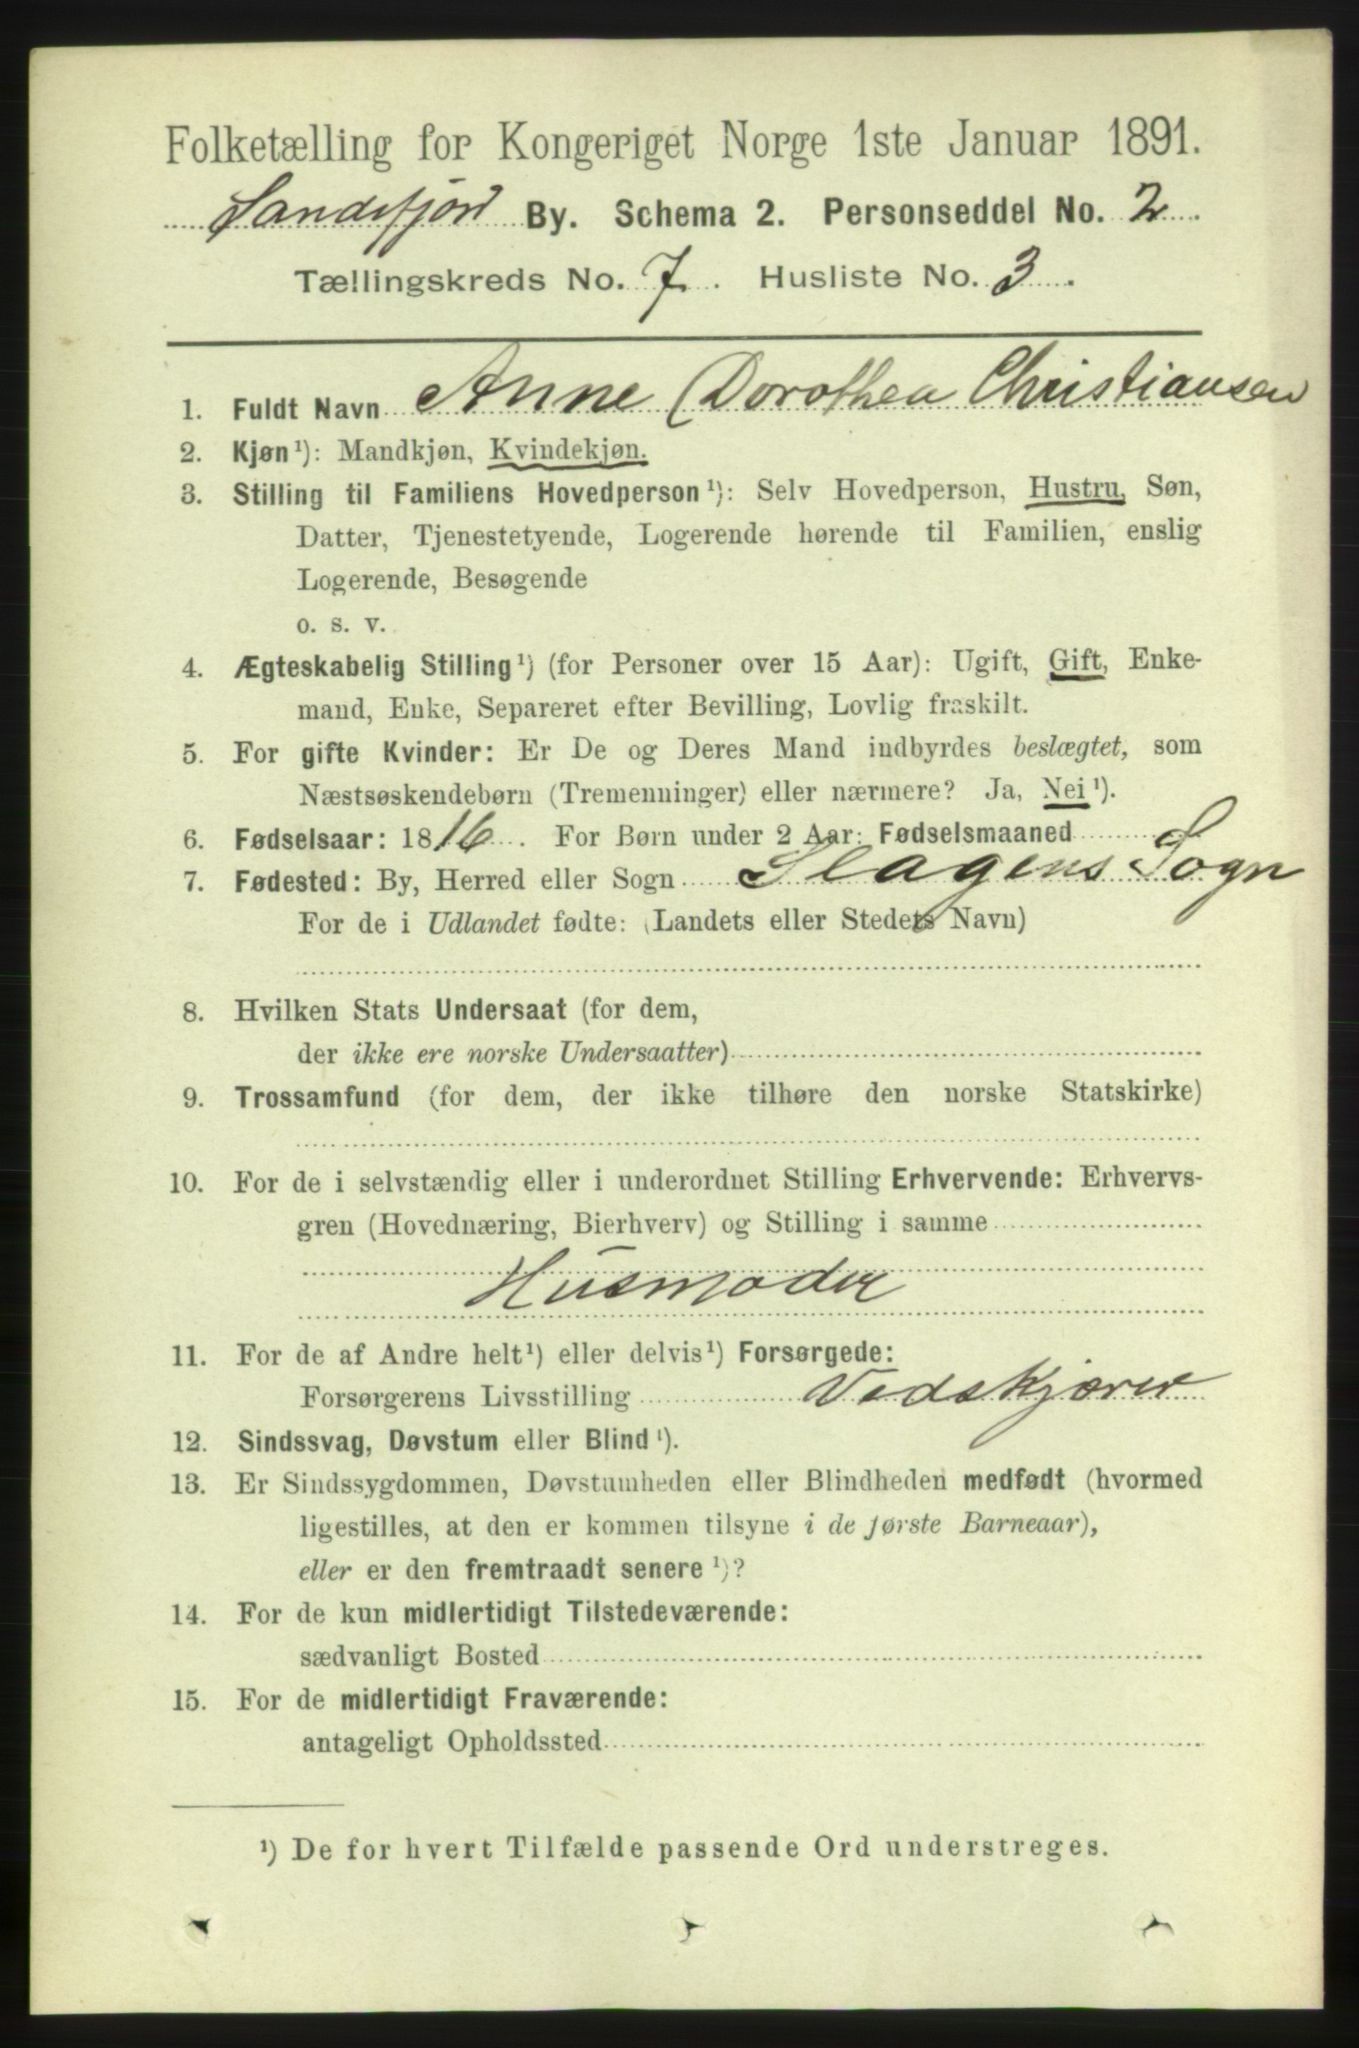 Folketælling for Kongeriget Norge 1ste Januar 1891.
Sandefjord By. Schema 2. Personseddel No. 2
Tællingskreds No. 7. Husliste No. 3
1. Fuldt Navn Anne Dorothea Christiansen
2. Kjøn¹): Mandkjøn, Kvindekjøn.
3. Stilling til Familiens Hovedperson¹): Selv Hovedperson, Hustru, Søn,
Datter, Tjenestetyende, Logerende hørende til Familien, enslig
Logerende, Besøgende
o. s. v.
4. Ægteskabelig Stilling¹) (for Personer over 15 Aar): Ugift, Gift, Enke-
mand, Enke, Separeret efter Bevilling, Lovlig fraskilt.
5. For gifte Kvinder: Er De og Deres Mand indbyrdes beslægtet, som
Næstsøskendebørn (Tremenninger) eller nærmere? Ja, Nei¹).
6. Fødselsaar: 1816. For Børn under 2 Aar: Fødselsmaaned
7. Fødested: By, Herred eller Sogn Slagens Sogn
For de i Udlandet fødte: (Landets eller Stedets Navn)
8. Hvilken Stats Undersaat (for dem,
der ikke ere norske Undersaatter)
9. Trossamfund (for dem, der ikke tilhøre den norske Statskirke)
10. For de i selvstændig eller i underordnet Stilling Erhvervende: Erhvervs-
gren (Hovednæring, Bierhverv) og Stilling i samme
Husmoder
11. For de af Andre helt¹) eller delvis¹) Forsørgede:
Forsørgerens Livsstilling Vedskjærer
12. Sindssvag, Døvstum eller Blind¹).
13. Er Sindssygdommen, Døvstumheden eller Blindheden medfødt (hvormed
ligestilles, at den er kommen tilsyne i de første Barneaar),
eller er den fremtraadt senere¹)?
14. For de kun midlertidigt Tilstedeværende:
sædvanligt Bosted
15. For de midlertidigt Fraværende:
antageligt Opholdssted
¹) De for hvert Tilfælde passende Ord understreges.